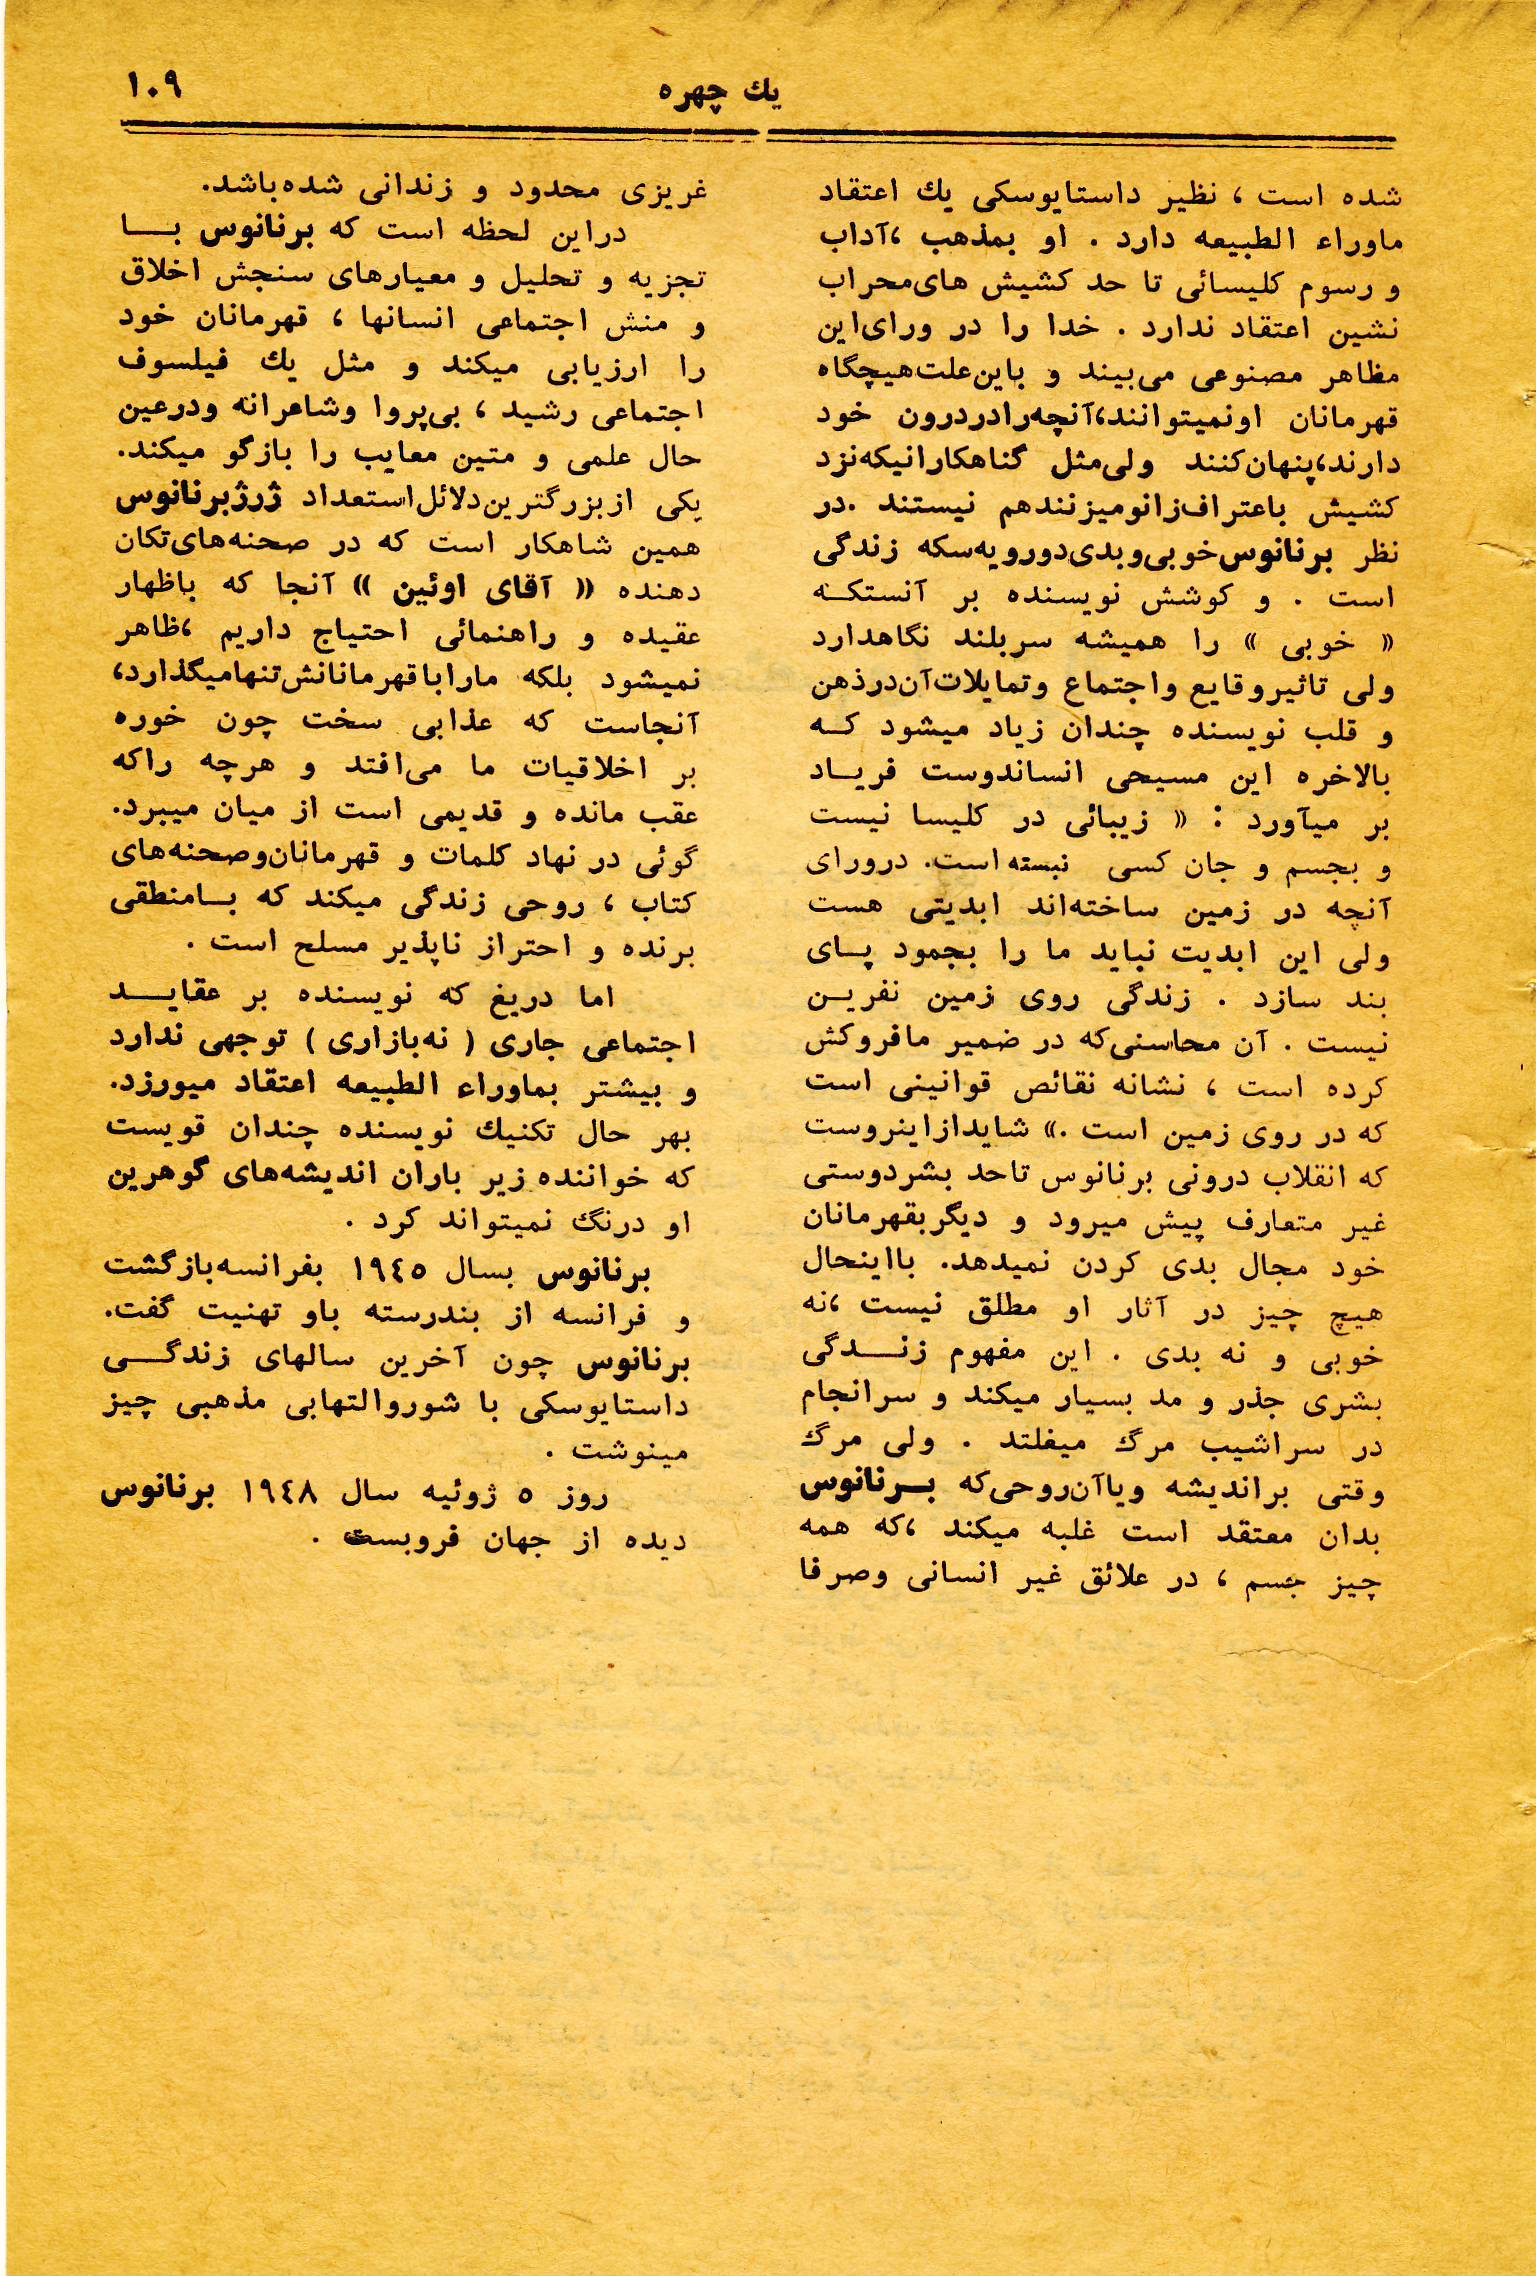 ۱۰۹
يك چهره
شده است ، نظیر داستایوسکی يك اعتقاد
ماوراء الطبیعه دارد . او بمذهب ،آداب
و رسوم کلیسائی تا حد کشیش های‌محراب
نشین اعتقاد ندارد . خدا را در ورای‌این
مظاهر مصنوعی می‌بیند و باین‌علت‌هیچگاه
قهرمانان اونمیتوانند،آنچه‌رادردرون خود
دارند،پنهان‌کنند ولی‌مثل گناهکارانیکه‌نزد
کشیش باعتراف‌زانومیزنندهم نیستند .در
نظر برنانوس‌خوبی‌وبدی‌دورویه‌سکه زندگی
است . و کوشش نویسنده بر آنستکه
« خوبی » را همیشه سربلند نگاهدارد
ولی تاثیروقایع واجتماع وتمایلات‌آن‌درذهن
و قلب نویسنده چندان زیاد میشود که
بالاخره این مسیحی انساندوست فریاد
بر میآورد : « زیبائی در کلیسا نیست
و بجسم و جان کسی نبسته است. درورای
آنچه در زمین ساخته‌اند ابدیتی هست
ولی این ابدیت نباید ما را بجمود پای
بند سازد . زندگی روی زمین نفرین
نیست . آن محاسنی‌که در ضمیر مافروکش
کرده است ، نشانه نقائص قوانینی است
که در روی زمین است .» شایدازاینروست
که انقلاب درونی برنانوس تاحد بشردوستی
غیر متعارف پیش میرود و دیگربقهرمانان
خود مجال بدی کردن نمیدهد. بااینحال
هیچ چیز در آثار او مطلق نیست ،نه
خوبی و نه بدی . این مفهوم زندگی
بشری جذر و مد بسیار میکند و سرانجام
در سراشیب مرگ میغلتد . ولی مرگ
وقتی براندیشه ویاآن‌روحی‌که برنانوس
بدان معتقد است غلبه میکند ،که همه
چیز جسم ، در علائق غیر انسانی وصرفا
غریزی محدود و زندانی شده‌باشد.
دراین لحظه است که برنانوس با
تجزیه و تحلیل و معیارهای سنجش اخلاق
و منش اجتماعی انسانها ، قهرمانان خود
را ارزیابی میکند و مثل يك فیلسوف
اجتماعی رشید ، بی‌پروا وشاعرانه ودرعین
حال علمی و متین معایب را بازگو میکند.
یکی ازبزرگترین‌دلائل‌استعداد ژرژبرنانوس
همین شاهکار است که در صحنه‌های‌تکان
دهنده « آقای اوئین » آنجا که باظهار
عقیده و راهنمائی احتیاج داریم ،ظاهر
نمیشود بلکه ماراباقهرمانانش‌تنهامیگذارد،
آنجاست که عذابی سخت چون خوره
بر اخلاقیات ما می‌افتد و هرچه راکه
عقب مانده و قدیمی است از میان میبرد.
گوئی در نهاد کلمات و قهرمانان‌وصحنه‌های
کتاب ، روحی زندگی میکند که بامنطقی
برنده و احتراز ناپذیر مسلح است .
اما دریغ که نویسنده بر عقاید
اجتماعی جاری ( نه‌بازاری ) توجهی ندارد
و بیشتر بماوراء الطبیعه اعتقاد میورزد.
بهر حال تکنيك نویسنده چندان قویست
که خواننده زیر باران اندیشه‌های گوهرین
او درنگ نمیتواند کرد .
برنانوس بسال ۱۹٤٥ بفرانسه‌بازگشت
و فرانسه از بندرسته باو تهنیت گفت.
برنانوس چون آخرین سالهای زندگی
داستایوسکی با شوروالتهابی مذهبی چیز
مینوشت .
روز ٥ ژوئیه سال ۱۹٤۸ برنانوس
دیده از جهان فروبست .